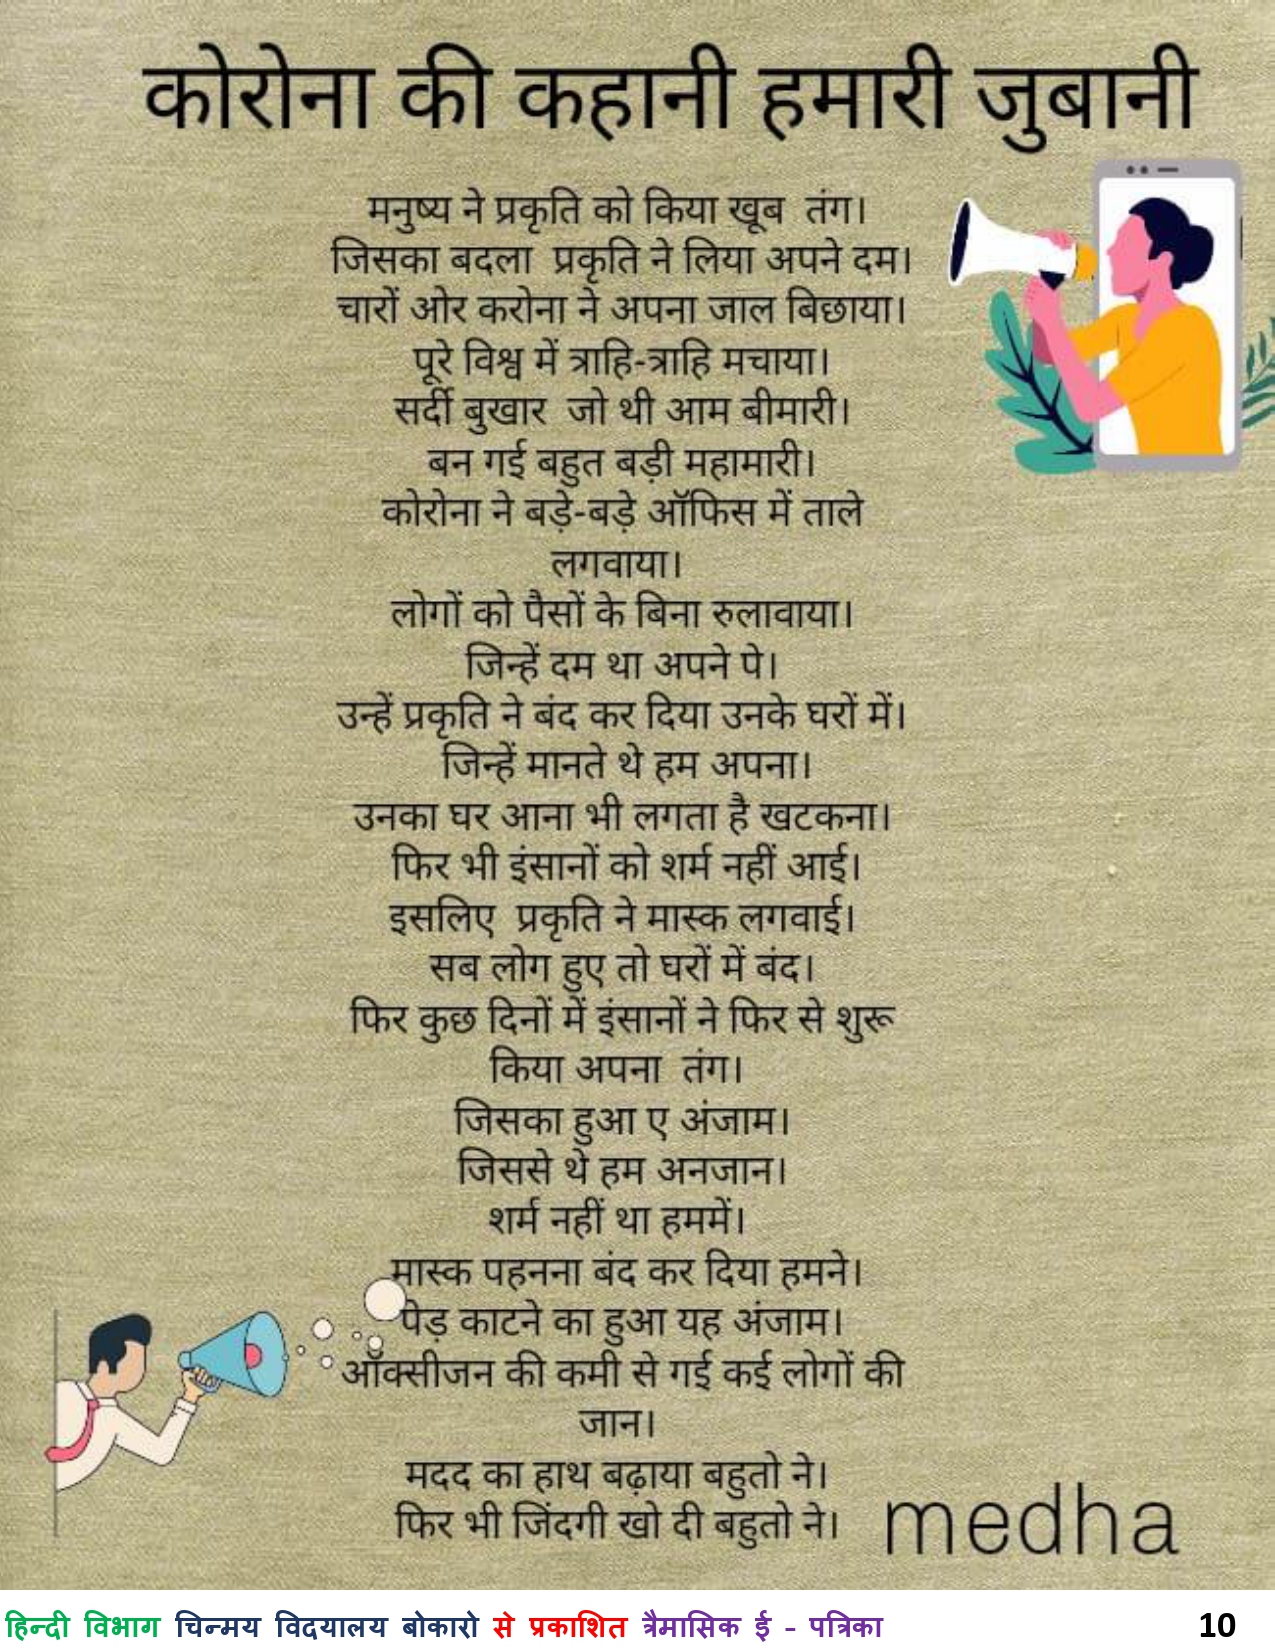 कोरोना की कहानी हमारी जुबानी
मनुष्य ने प्रकृति को किया खूब तंग।
जिसका बदला प्रकृति ने लिया अपने दम।
चारों ओर करोना ने अपना जाल बिछाया।
पूरे विश्व में त्राहि-त्राहि मचाया।
सर्दी बुखार जो थी आम बीमारी।
बन गई बहुत बड़ी महामारी।
कोरोना ने बड़े-बड़े ऑफिस में ताले
लगवाया।
लोगों को पैसों के बिना रुलावाया।
जिन्हें दम था अपने पे।
उन्हें प्रकृति ने बंद कर दिया उनके घरों में।
जिन्हें मानते थे हम अपना।
उनका घर आना भी लगता है खटकना।
फिर भी इंसानों को शर्म नहीं आई।
इसलिए प्रकृति ने मास्क लगवाई।
सब लोग हुए तो घरों में बंद।
फिर कुछ दिनों में इंसानों ने फिर से शुरू
किया अपना तंग।
जिसका हुआ ए अंजाम।
जिससे थे हम अनजान।
शर्म नहीं था हममें।
मास्क पहनना बंद कर दिया हमने।
पेड़ काटने का हुआ यह अंजाम।
ऑक्सीजन की कमी से गई कई लोगों की
जान।
मदद का हाथ बढ़ाया बहुतो ने।
फिर भी जिंदगी खो दी बहुतो ने।
medha
हिन्दी विभाग चिन्मय विदयालय बोकारो से प्रकाशित त्रैमासिक ई - पत्रिका 10